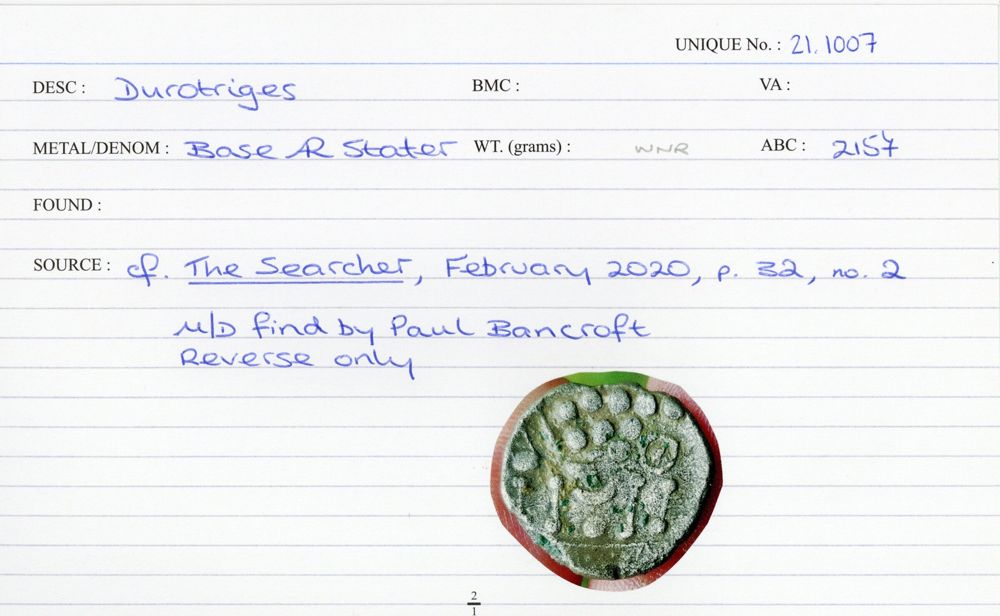 UNIQUE No. : 21.1007
DESC : Durotriges BMC : VA :
METAL/DENOM : Base AR Stater WT. (grams) : WNR ABC : 2157
FOUND :
SOURCE : cf. The Searcher, February 2020, p. 32, no. 2
M/D find by Paul Bancroft
Reverse only
2
1